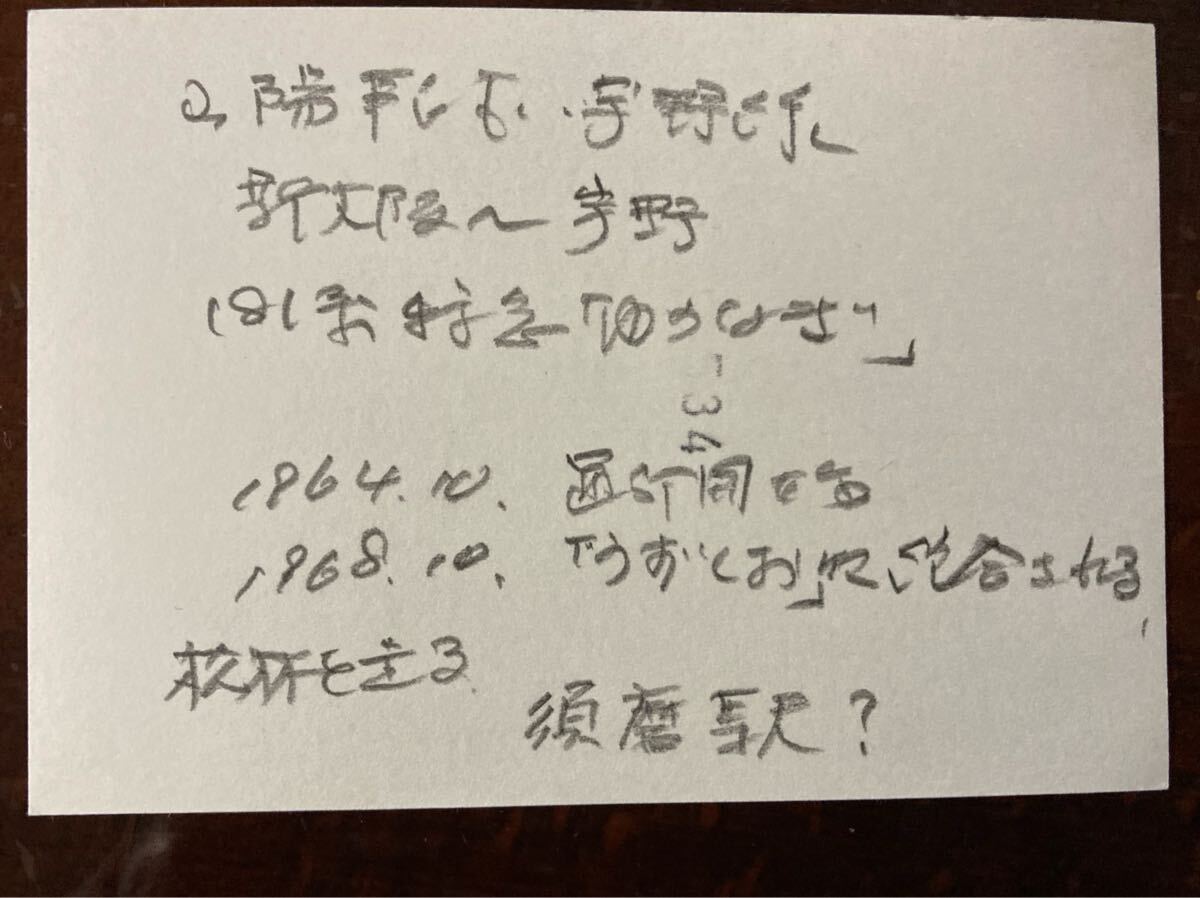 新大阪〜宇野
181系特急「ゆうなぎ」
-34
1964.10. 運行開始
1968.10.「うずしお」に統合される
松林を走る
須磨駅?